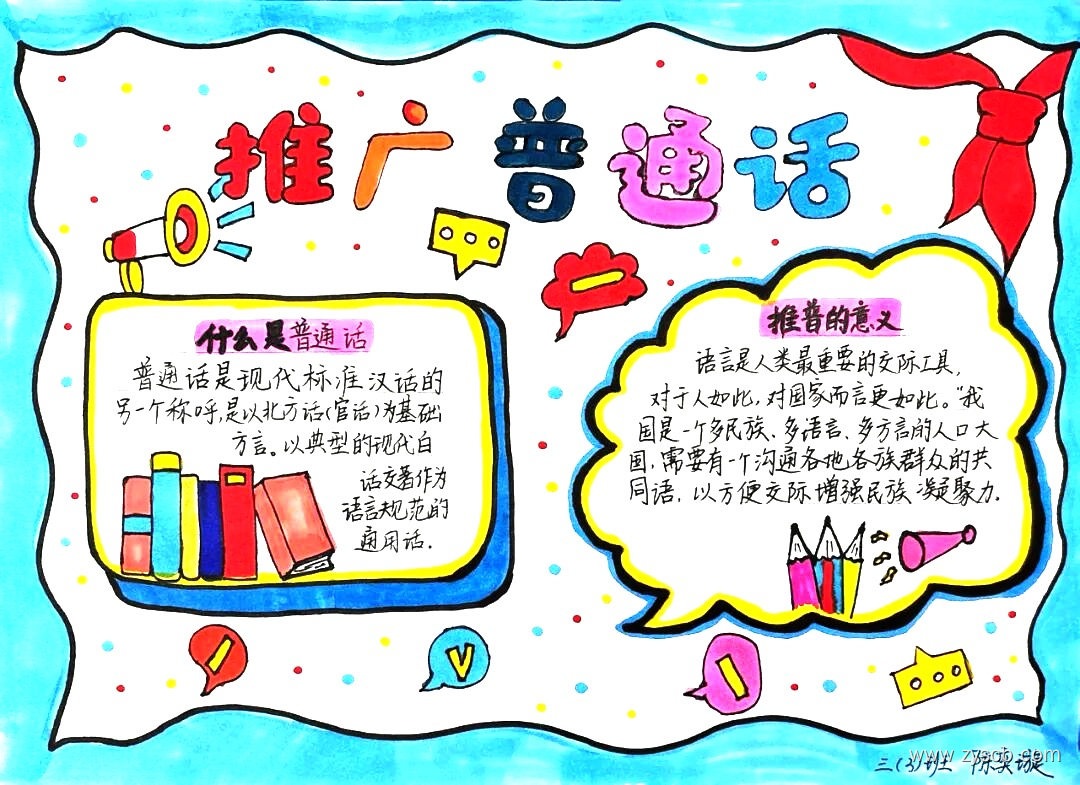 推广普通话
什么是普通话
普通话是现代标准汉话的
另一个称呼,是以北方话(官话)为基础
方言。以典型的现代白
话文著作为
语言规范的
通用话.
推普的意义
语言是人类最重要的交际工具,
对于人如此,对国家而言更如此。"我
国是一个多民族、多语言、多方言的人口大
国,需要有一个沟通各地各族群众的共
同语,以方便交际增强民族凝聚力.
三(3)班 陈奕璇